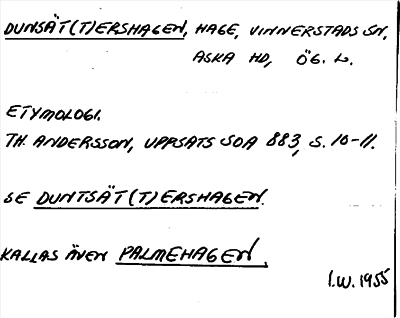 DUNSÄT(T)ERSHAGEN, HAGE, VINNERSTADS SN,
ASKA HD, ÖG. L.
ETYMOLOGI.
TH. ANDERSSON, UPPSATS SOA 883, S. 10-11.
SE DUNTSÄT(T)ERSHAGEN.
KALLAS ÄVEN PALMEHAGEN.
I.W. 1955